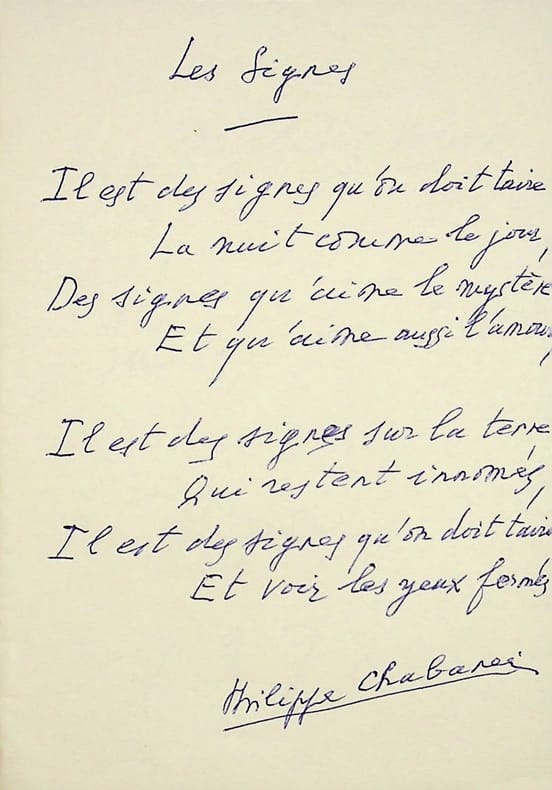 Les Signes
Il est des signes qu'on doit taire
La nuit comme le jour,
Des signes qu'aime le mystère
Et qu'aime aussi l'amour,
Il est des signes sur la terre
Qui restent innomés,
Il est des signes qu'on doit taire
Et voir les yeux fermés
Philippe Chabaneix